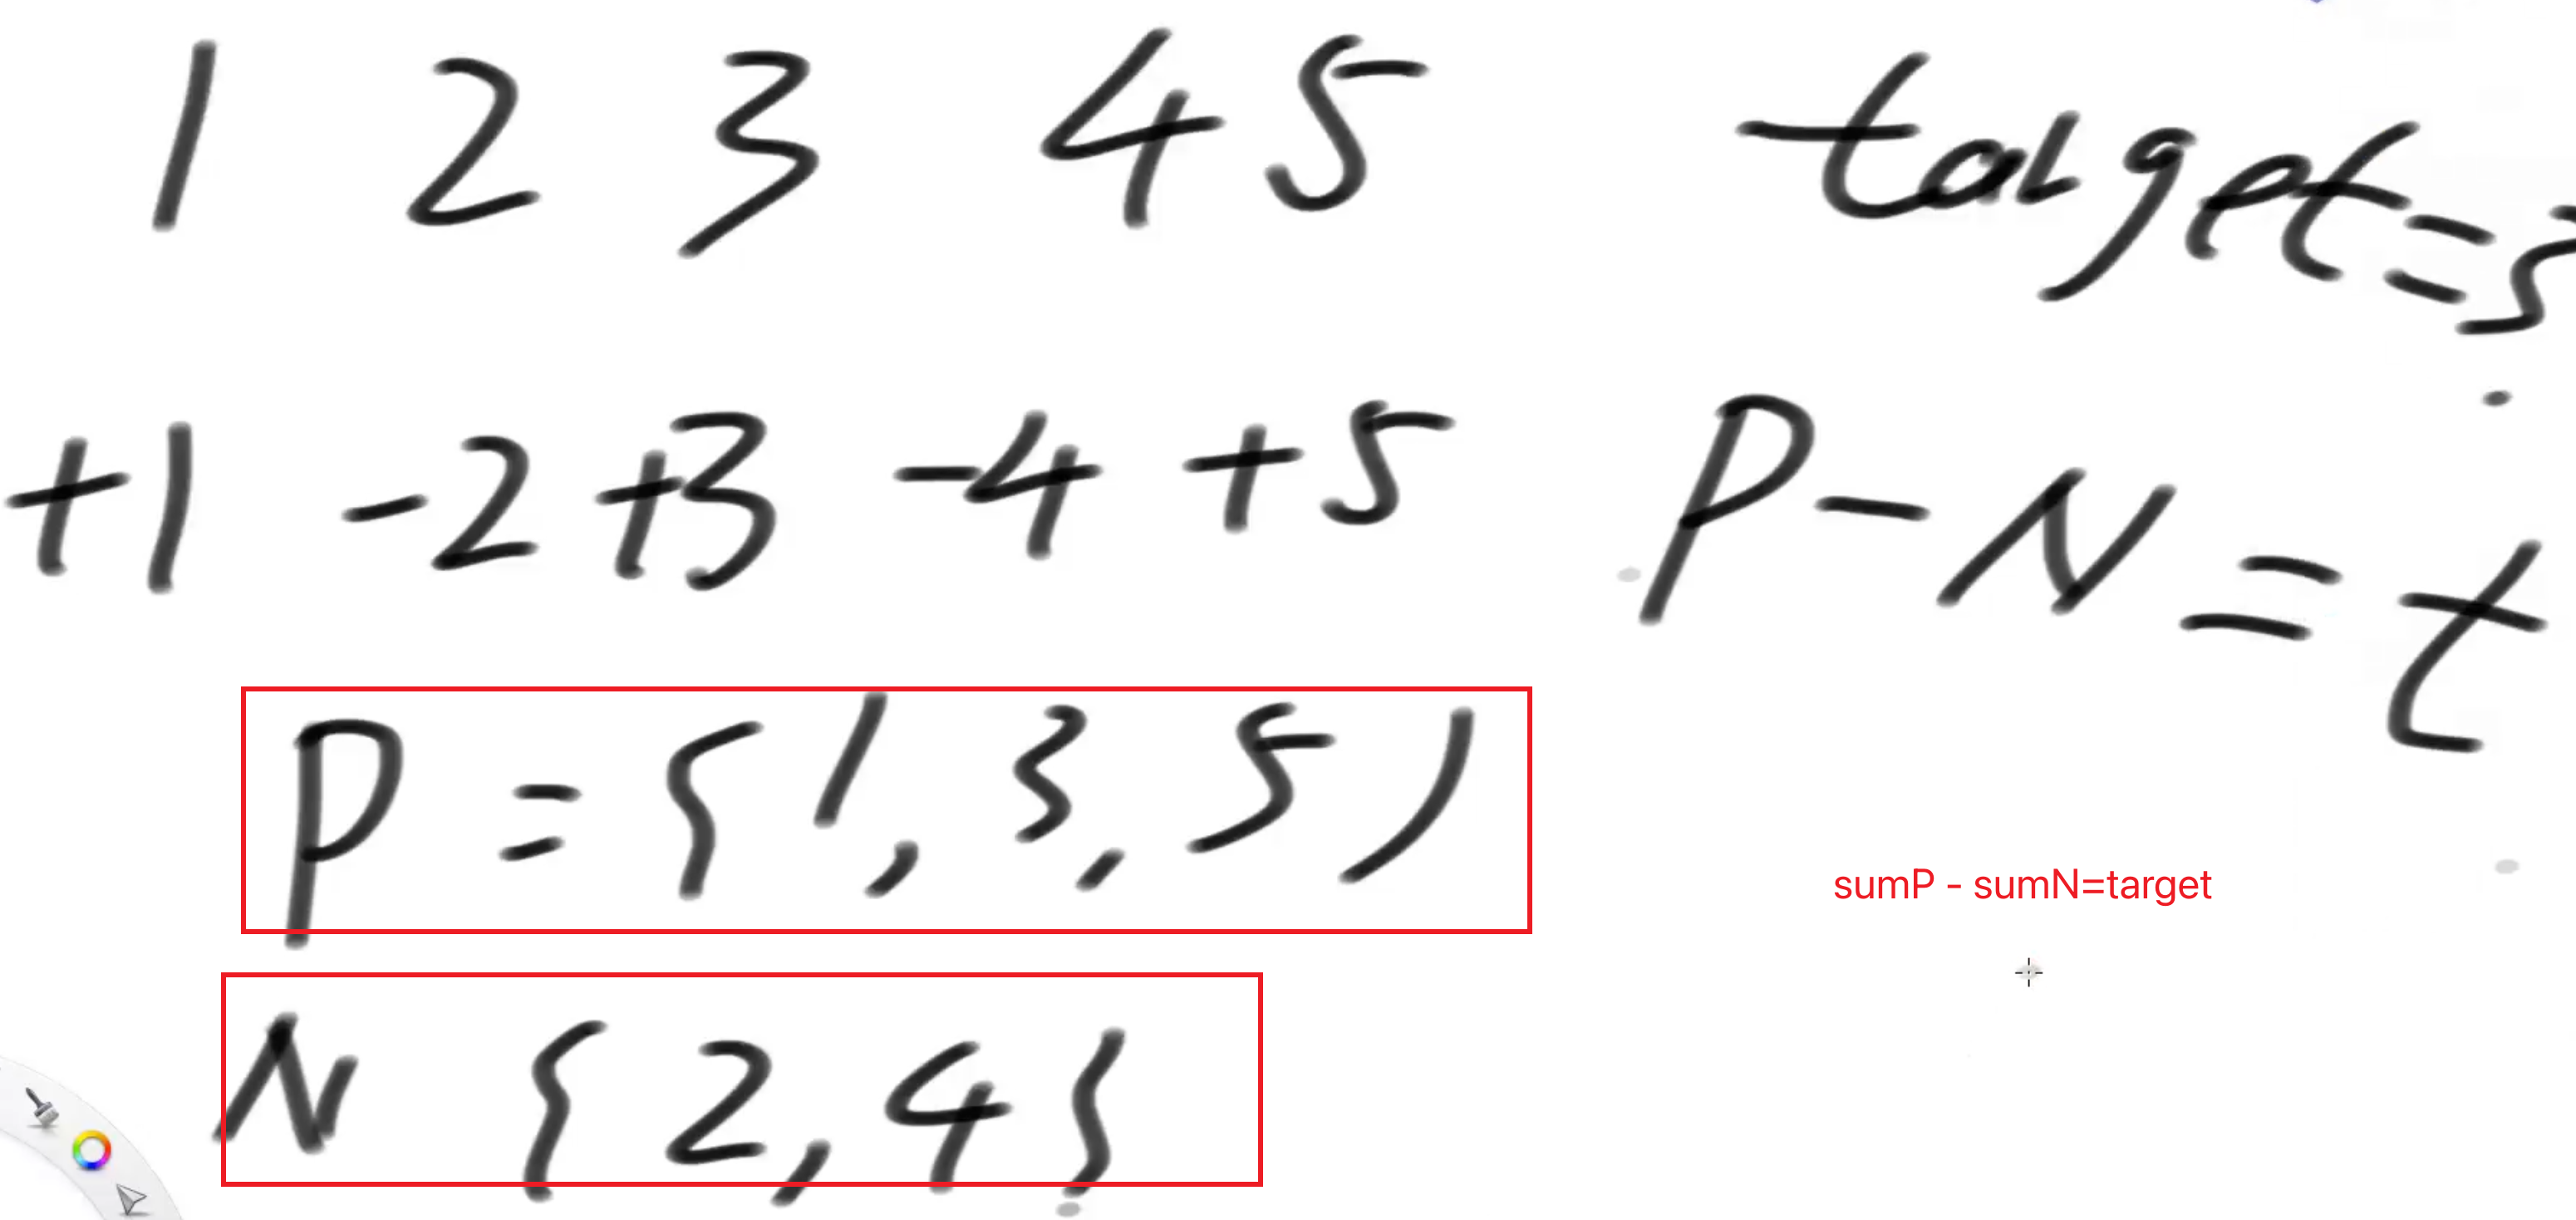 1 2 3 4 5
target=3
+1 -2 +3 -4 +5
P-N=t
P = { 1, 3, 5 )
sumP - sumN=target
N { 2, 4 }